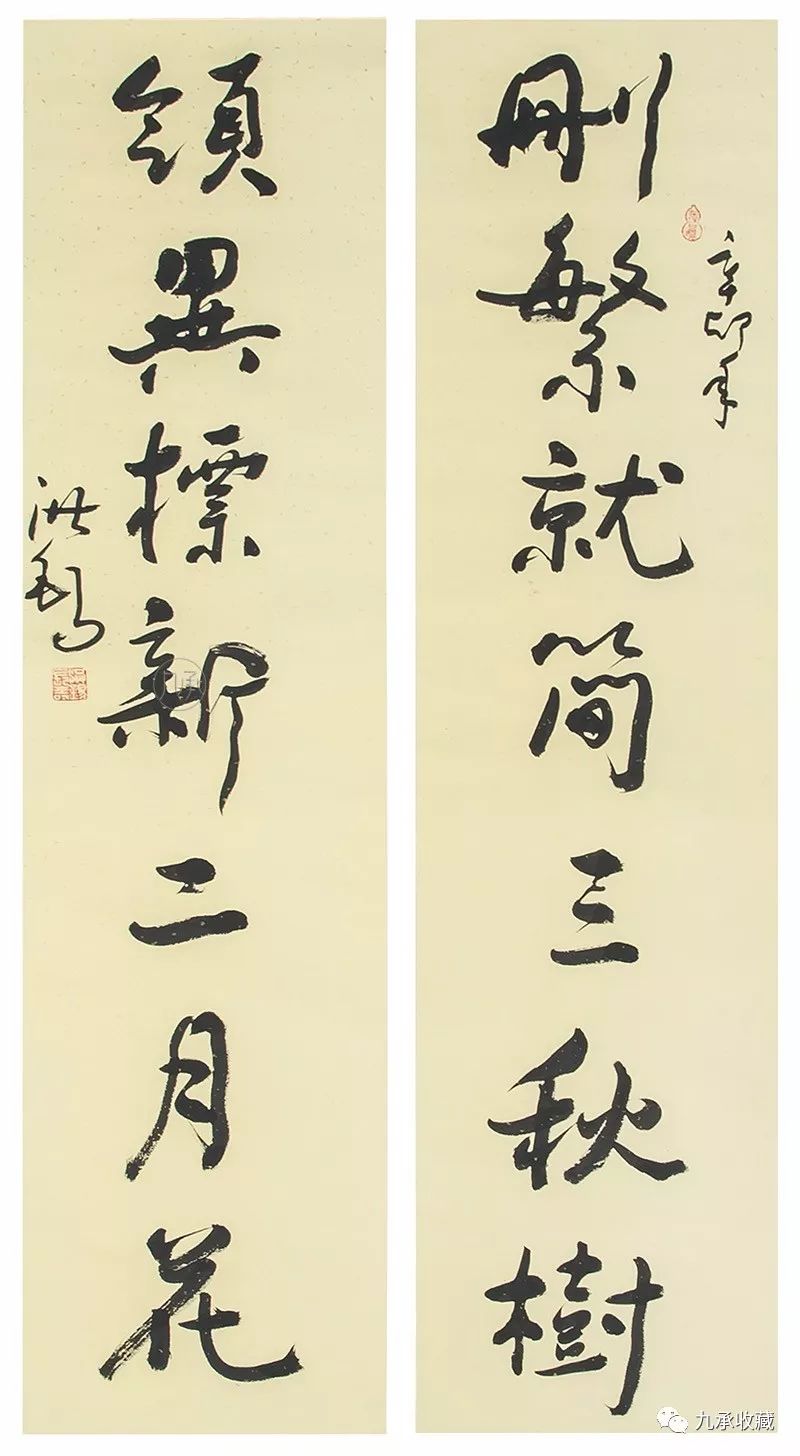 刪繁就簡三秋樹
辛卯年
領異標新二月花
九承
九承收藏